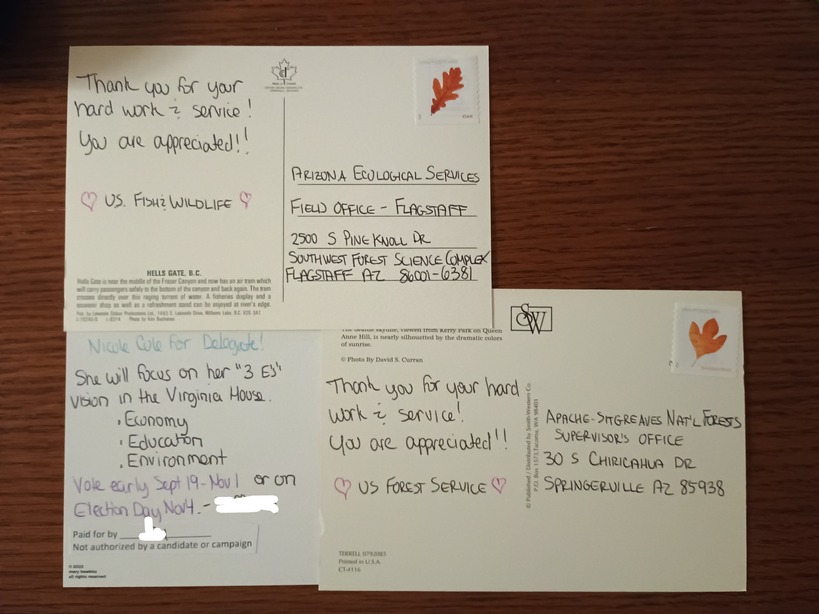 Thank you for your
hard work & service!
You are appreciated!!
♡ US. FISH & WILDLIFE ♡
HELLS GATE, B.C.
Hells Gate is near the middle of the Fraser Canyon and now has an air tram which
will carry passengers safely to the bottom of the canyon and back again. The tram
crosses directly over this raging torrent of water. A fisheries display and a
souvenir shop as well as a refreshment stand can be enjoyed at river's edge.
ARIZONA ECOLOGICAL SERVICES
FIELD OFFICE - FLAGSTAFF
2500 S PINE KNOLL DR
SOUTHWEST FOREST SCIENCE COMPLEX
FLAGSTAFF AZ 86001-6381
Nicole Cole For Delegate!
She will focus on her "3 E's"
vision in the Virginia House.
• Economy
• Education
• Environment
Vote early Sept 19-Nov 1 or on
Election Day Nov 4. -
Paid for by
Not authorized by a candidate or campaign
© 2022
all rights reserved
The Seattle skyline, viewed from Kerry Park on Queen
Anne Hill, is nearly silhouetted by the dramatic colors
of sunrise.
© Photo By David S. Curran
Thank you for your hard
work & service!
You are appreciated!!
♡ US FOREST SERVICE ♡
TERRELL
Printed in U.S.A.
CT-4116
SW
Published / Distributed by Smith-Western Co.
P.O. Box 1573, Tacoma, WA 98401
APACHE-SITGREAVES NAT'L FORESTS
SUPERVISOR'S OFFICE
30 S CHIRICAHUA DR
SPRINGERVILLE AZ 85938